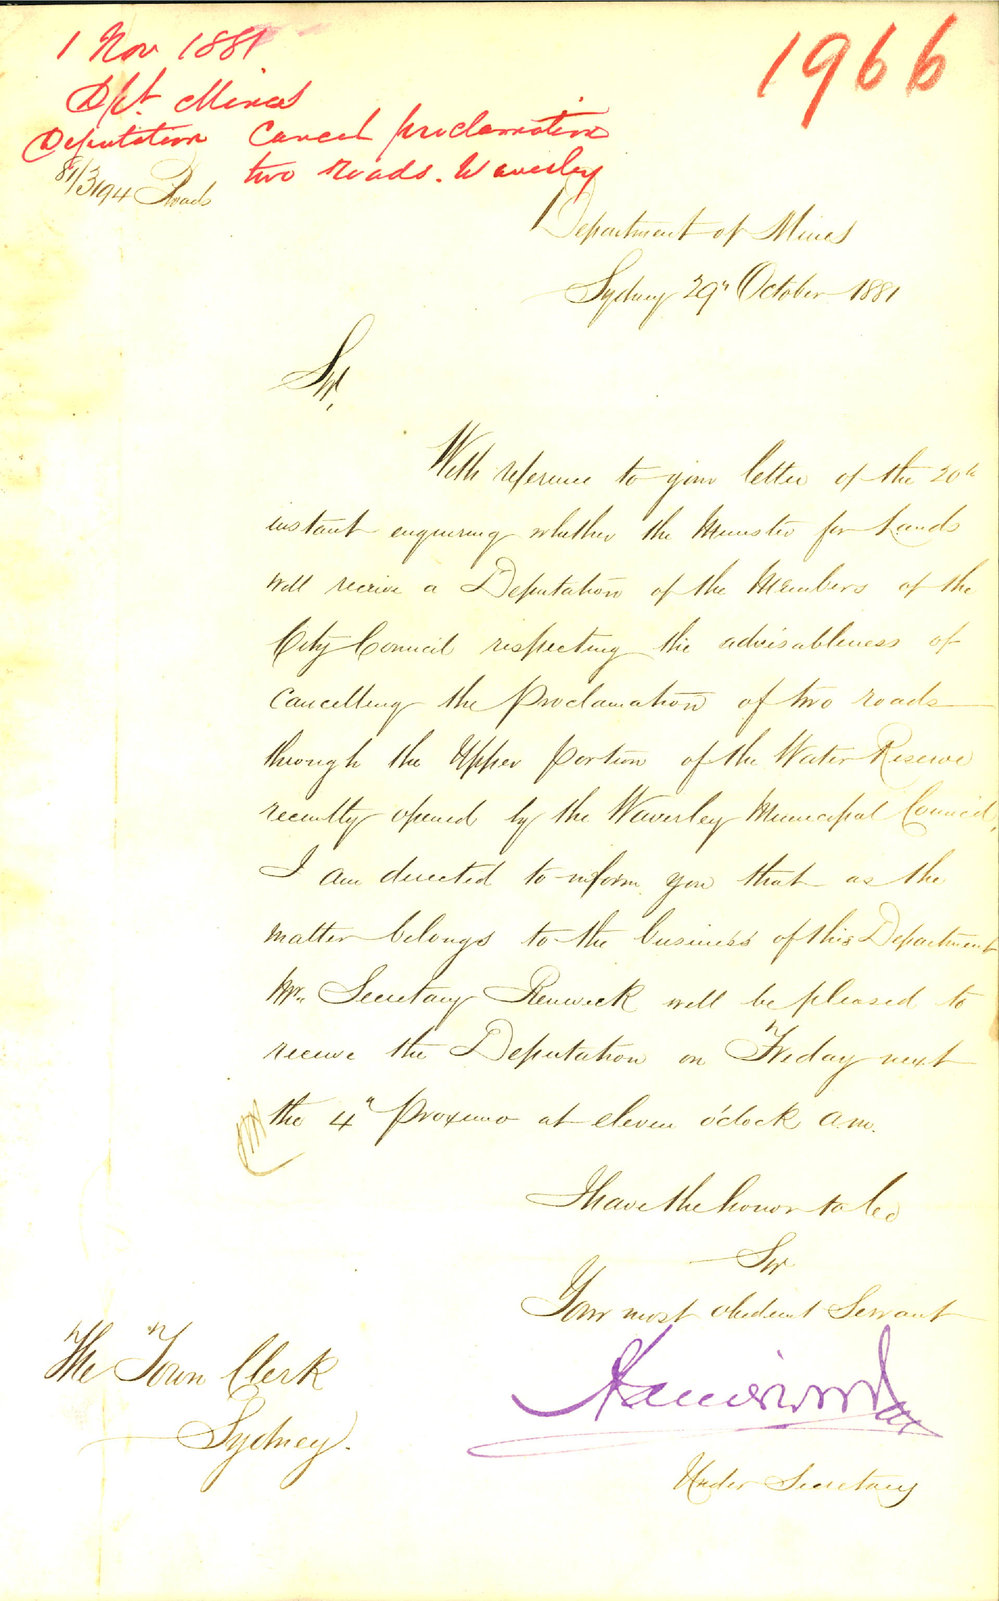 1 Nov 1881
1966
Dpt. Mines
Deputation Cancel proclamation
two roads. Waverley
81/3194 Roads
Department of Mines
Sydney 29th October 1881
Sir,
With reference to your letter of the 20th
instant enquiring whether the Minister for Lands
will receive a Deputation of the Members of the
City Council respecting the advisableness of
Cancelling the Proclamation of two roads
through the Upper portion of the Water Reserve
recently opened by the Waverley Municipal Council,
I am directed to inform you that as the
matter belongs to the business of this Department
Mr. Secretary Renwick will be pleased to
receive the Deputation on Friday next
the 4th Proximo at eleven o'clock a.m.
I have the honor to be
Sir
Your most obedient Servant
Under Secretary
The Town Clerk
Sydney.